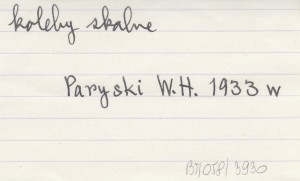 koleby skalne
Paryski W.H. 1933 w
3930